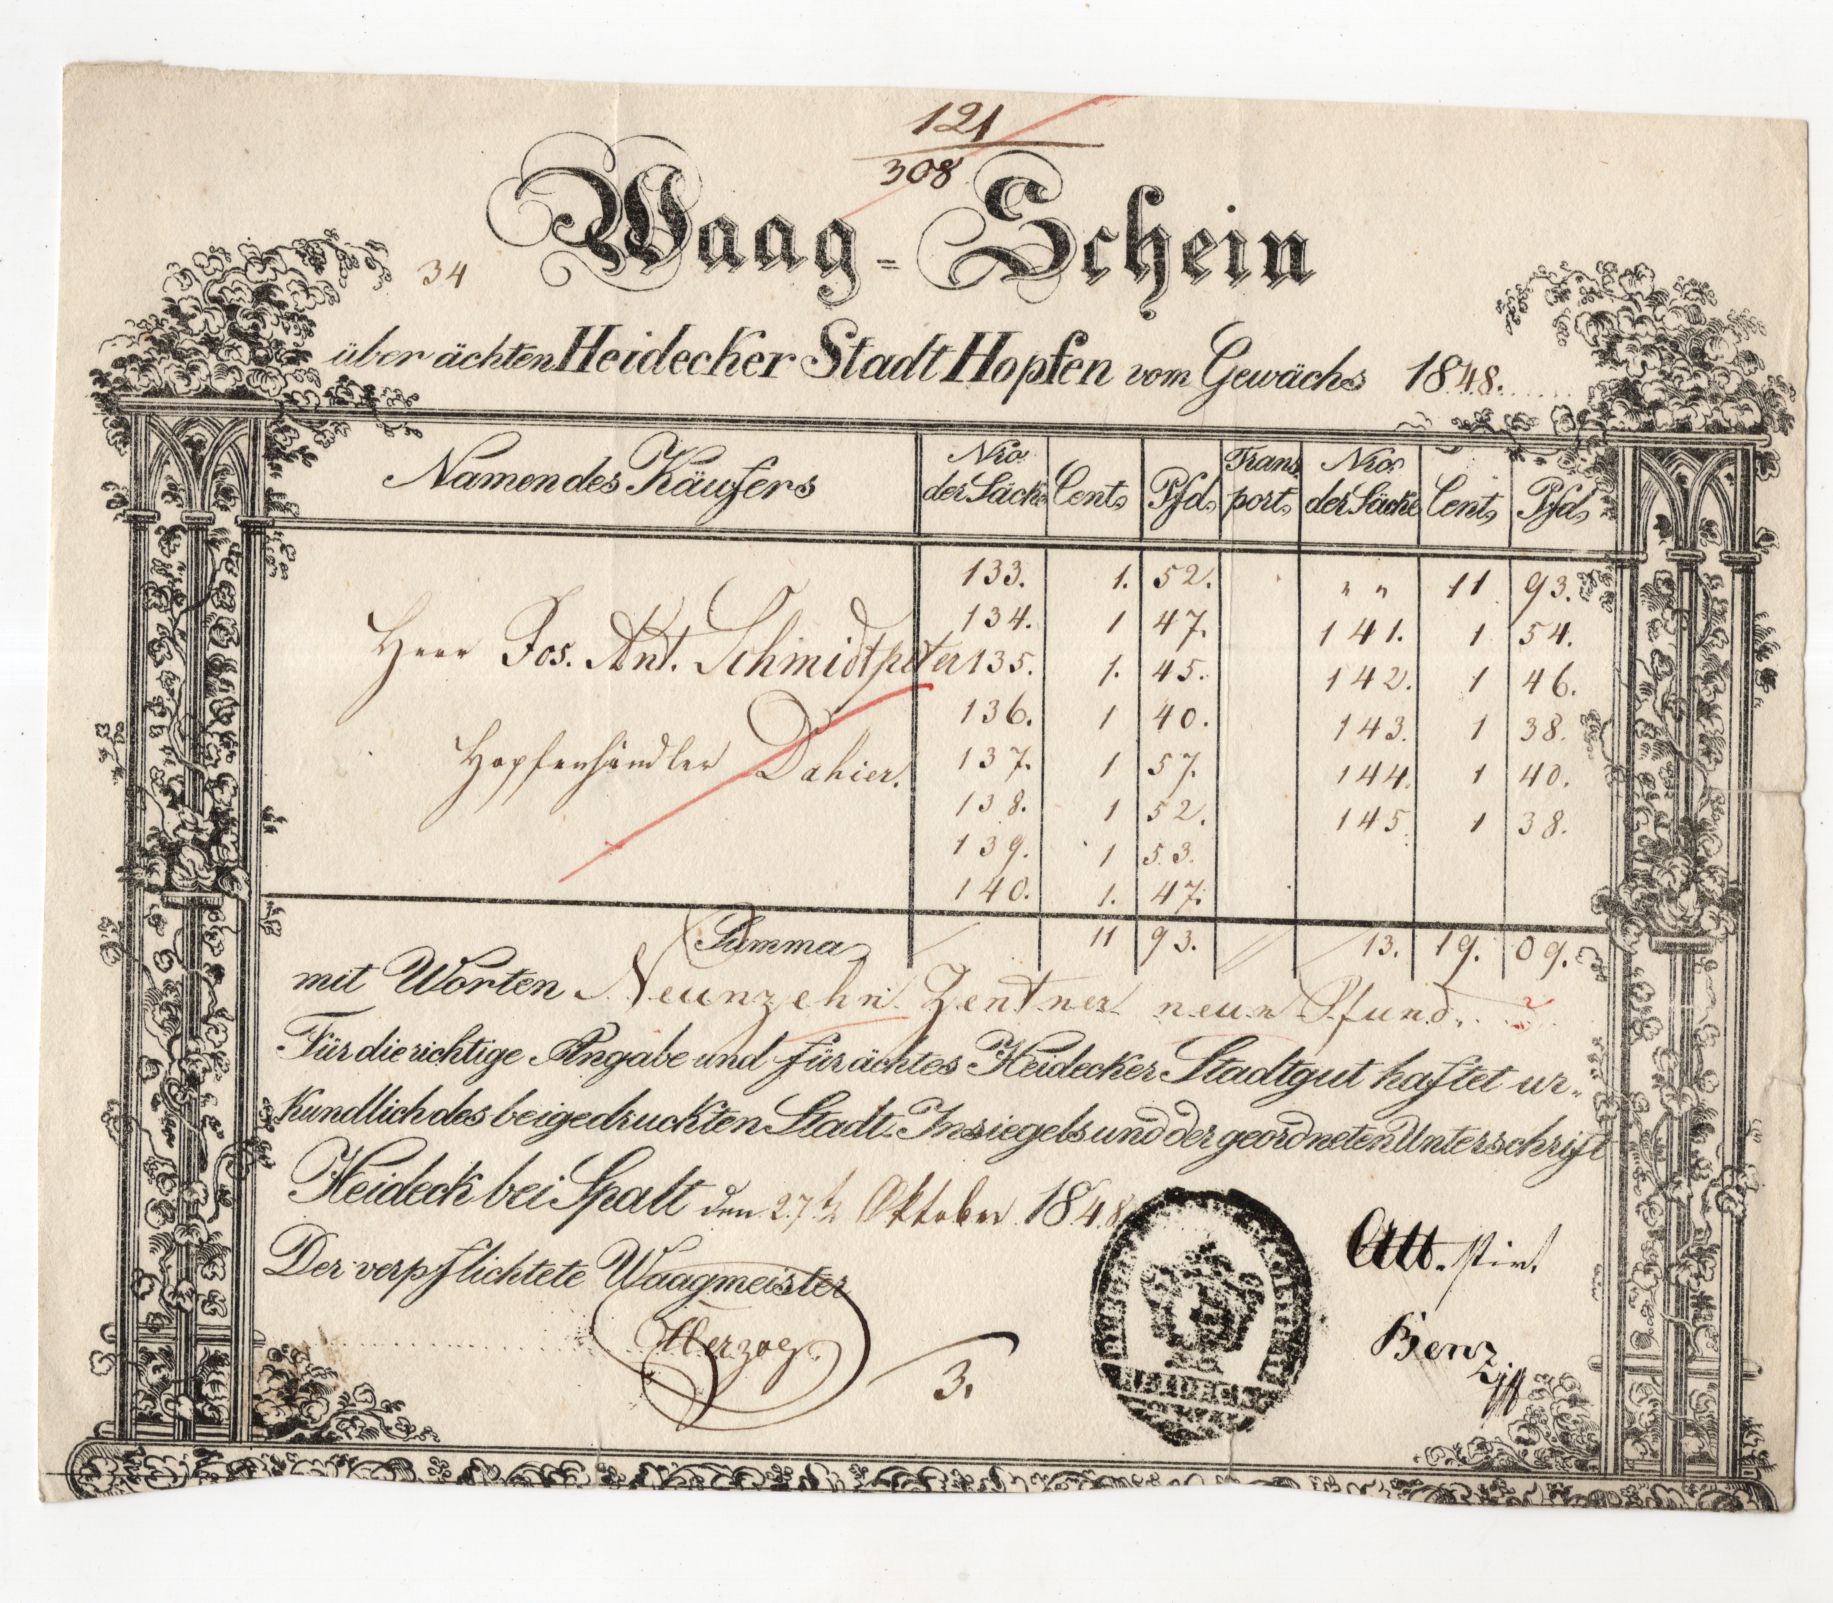 121
308
Waag-Schein
34
über ächten Heidecker Stadt Hopfen vom Gewächs 1848.
Namen des Käufers
Nro. der Säcke
Cent.
Pfd.
Transport.
Nro. der Säcke
Cent.
Pfd.
133. 1. 52. " " 11 93.
134. 1 47. 141. 1 54.
Herr Jos. Ant. Schmidtpeter 135. 1. 45. 142. 1 46.
136. 1 40. 143. 1 38.
Hopfenhändler Dahier. 137. 1 57. 144. 1 40.
138. 1 52. 145. 1 38.
139. 1 53.
140. 1. 47.
Summa 11 93. 13. 19. 09.
mit Worten Neunzehn Zentner neun Pfund.
Für die richtige Angabe und für ächtes Heidecker Stadtgut haftet ur-
kundlich des beigedruckten Stadt-Insiegels und der geordneten Unterschrift
Heideck bei Spalt den 27t Oktober 1848
Der verpflichtete Waagmeister
Herzog.
3.
HEIDECK
Benz